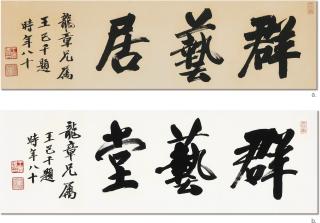 群藝居
龍章兄屬
王己千題
時年八十
a.
群藝堂
龍章兄屬
王己千題
時年八十
b.